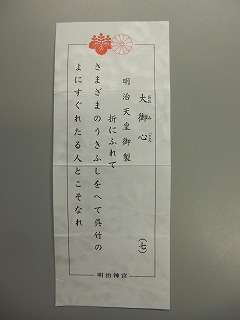 大御心
おおみごころ
（七）
明治天皇御製
折にふれて
さまざまのうきふしをへて呉竹の
よにすぐれたる人とこそなれ
明治神宮